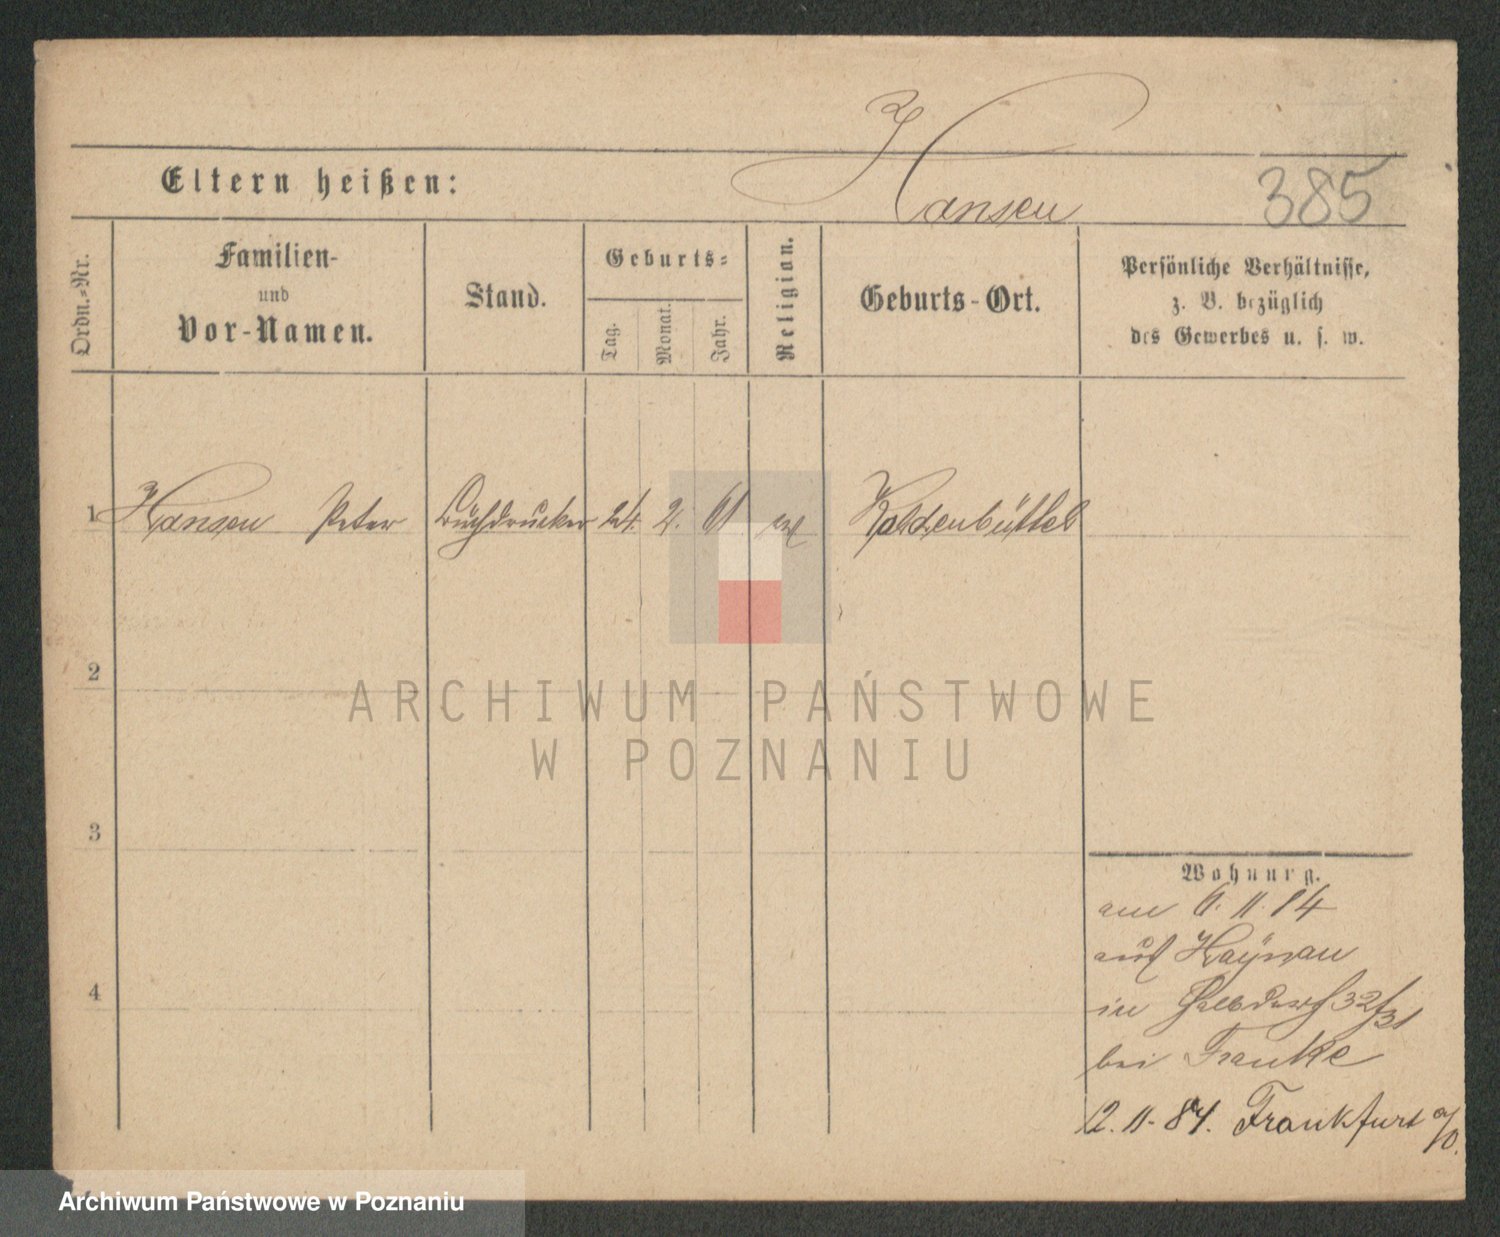 Hansen
385
Eltern heißen:
Ordn.-Nr.
Familien-
und
Vor-Namen.
Stand.
Geburts-
Tag.
Monat.
Jahr.
Religion.
Geburts-Ort.
Persönliche Verhältnisse,
z. B. bezüglich
des Gewerbes u. s. w.
1 Hansen Peter Buchdrucker 24. 2. 61 ev Koldenbüttel
2
3
4
Wohnung.
am 6. 11. 84
auf Haynau
in Halbdorf 32/31
bei Franke
12. 11. 84. Frankfurt a/O.
ARCHIWUM PAŃSTWOWE
W POZNANIU
Archiwum Państwowe w Poznaniu